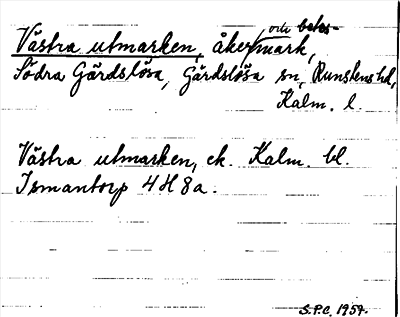 Västra utmarken, åker och betesmark,
Södra Gärdslösa, Gärdslösa sn, Runstens hd,
Kalm. l.
Västra utmarken, ek. Kalm. bl.
Ismantorp 4 H 8 a.
S.P.C. 1957.